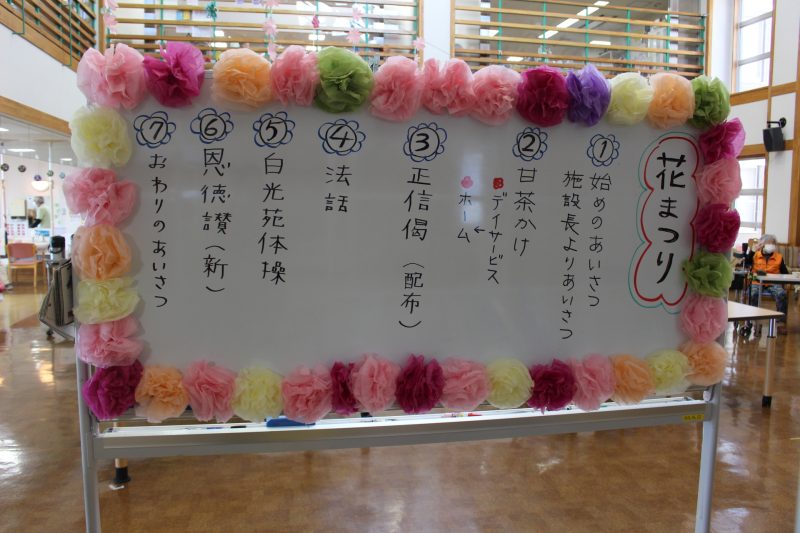 花まつり
① 始めのあいさつ
施設長よりあいさつ
② 甘茶かけ
デイサービス
←
ホーム
③ 正信偈 (配布)
④ 法話
⑤ 白光苑体操
⑥ 恩徳讃 (新)
⑦ おわりのあいさつ